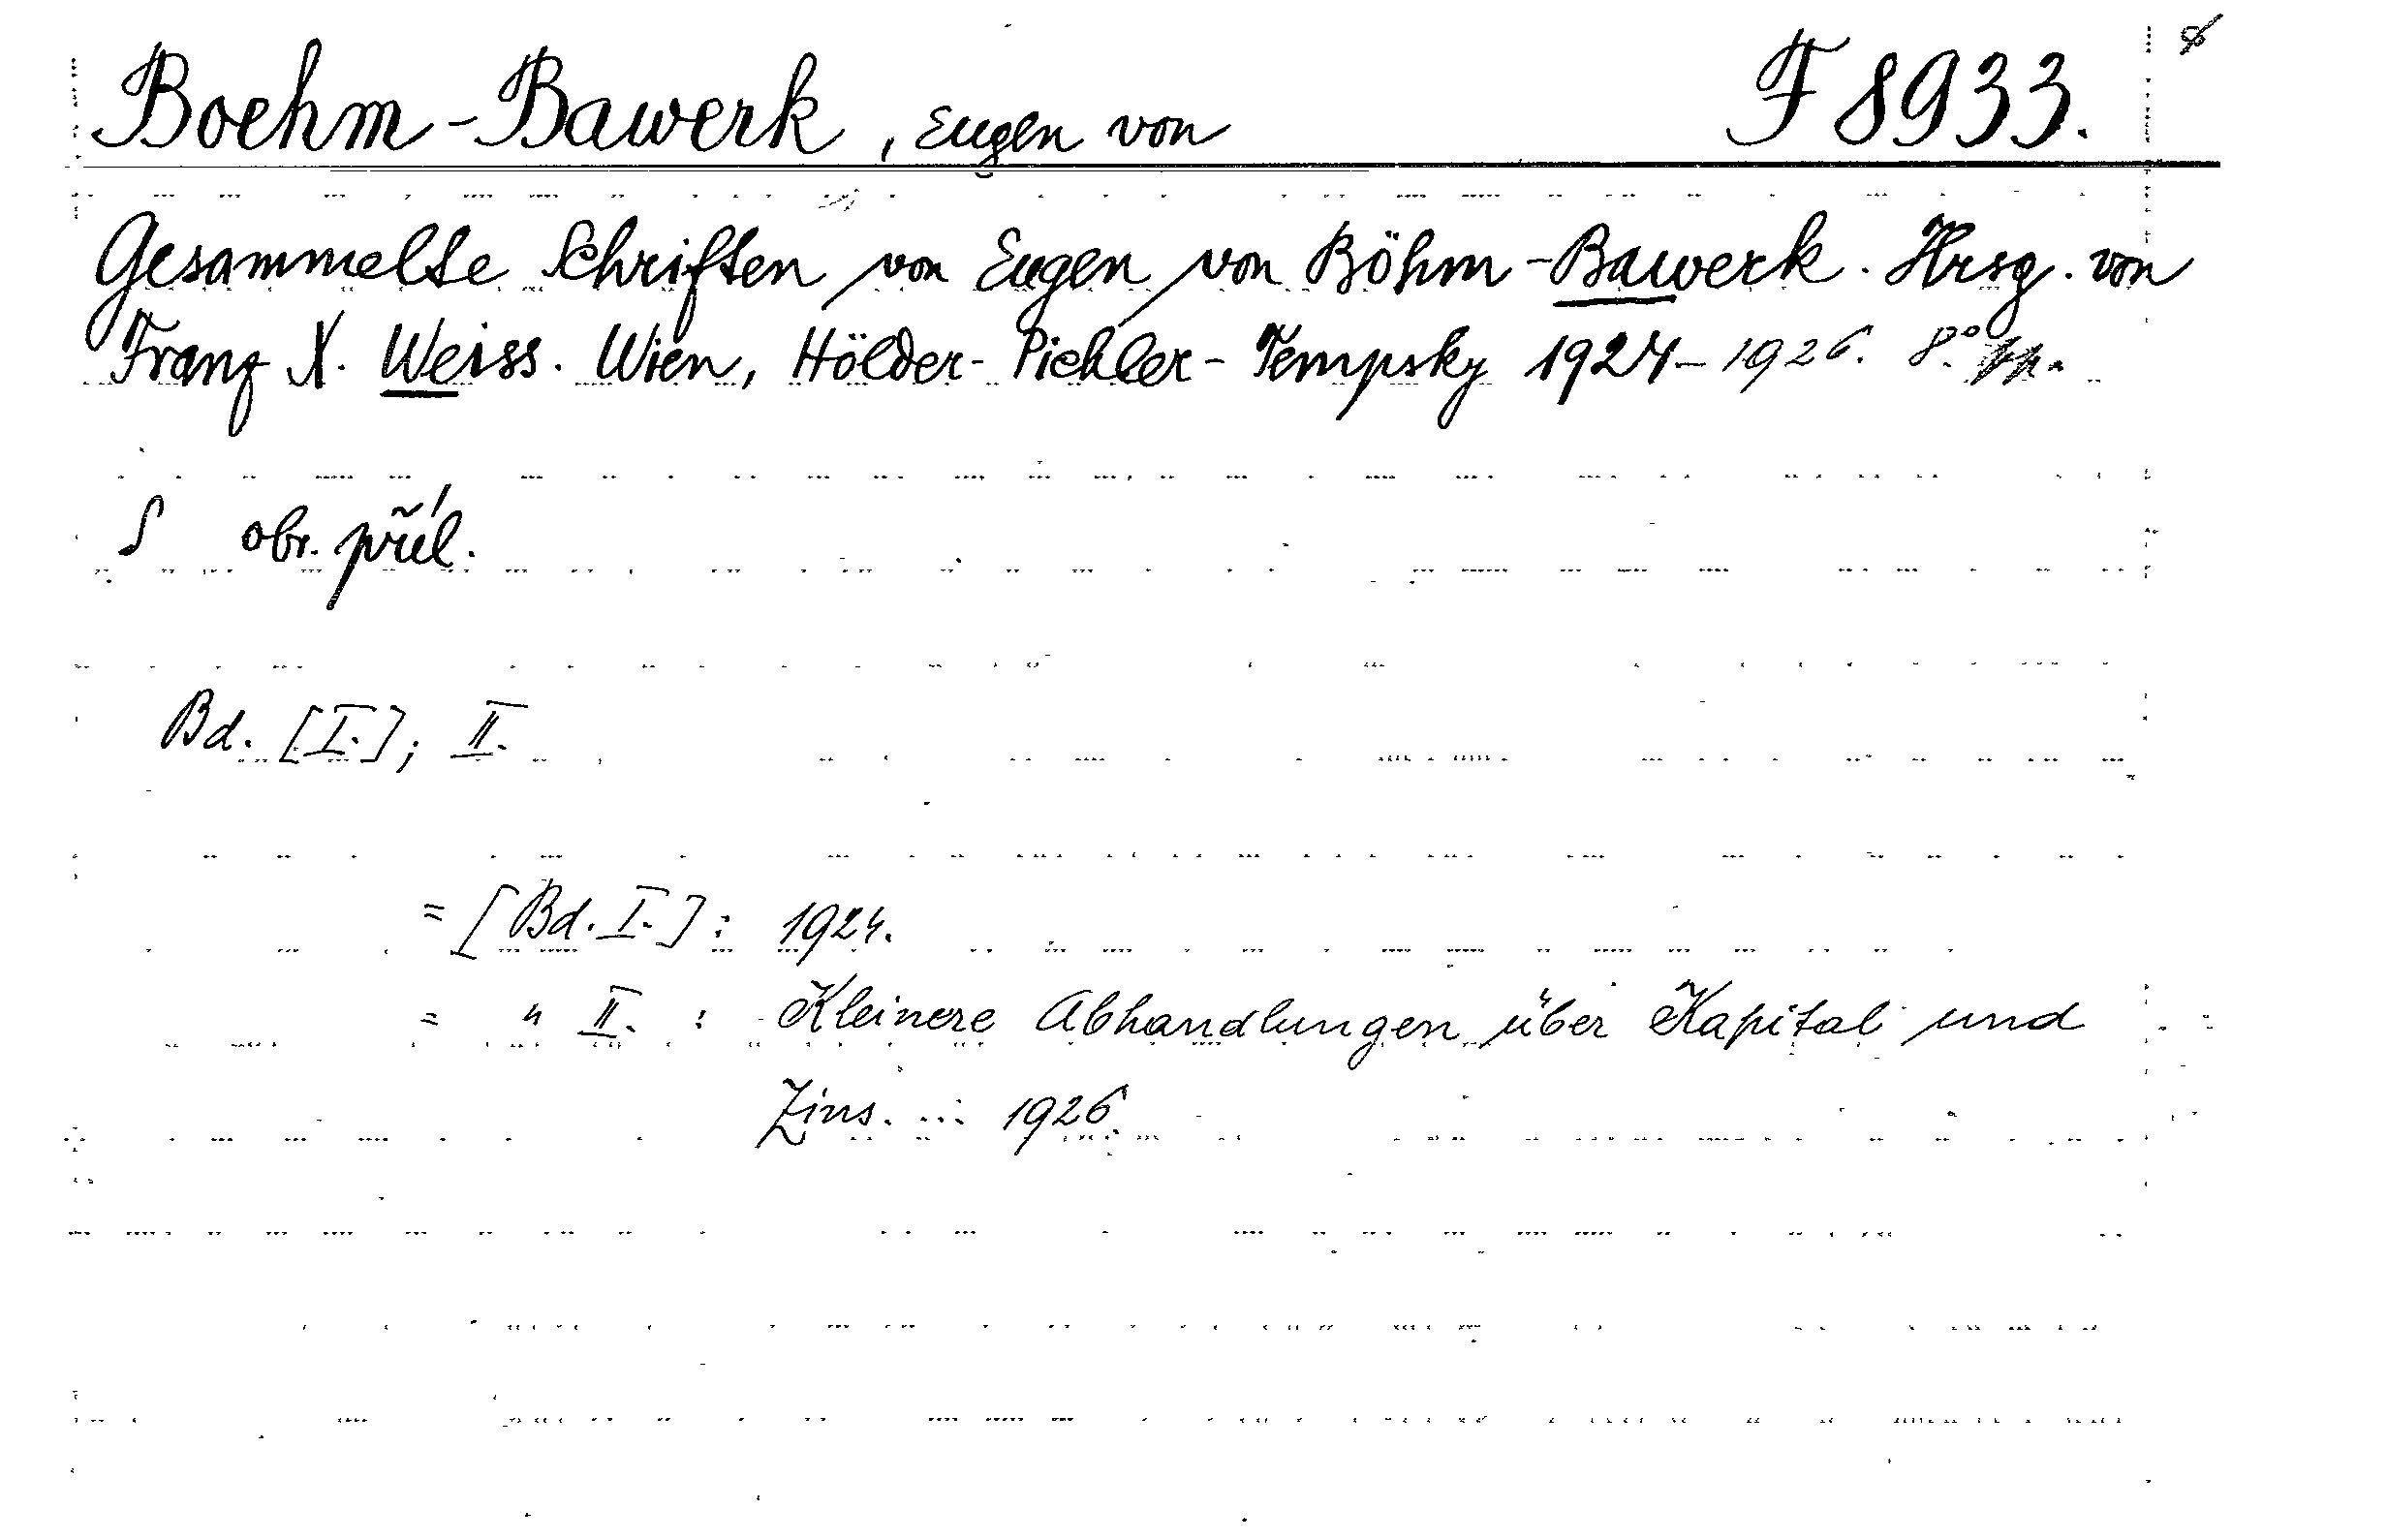 Boehm-Bawerk, Eugen von F 8933.
Gesammelte Schriften von Eugen von Böhm-Bawerk. Hrsg. von
Franz X. Weiss. Wien, Hölder-Pichler-Tempsky 1924-1926. 8°.
S obr. příl.
Bd. [I.]; II.
= [Bd. I.]: 1924.
= " II. : Kleinere Abhandlungen über Kapital und
Zins. ... 1926.